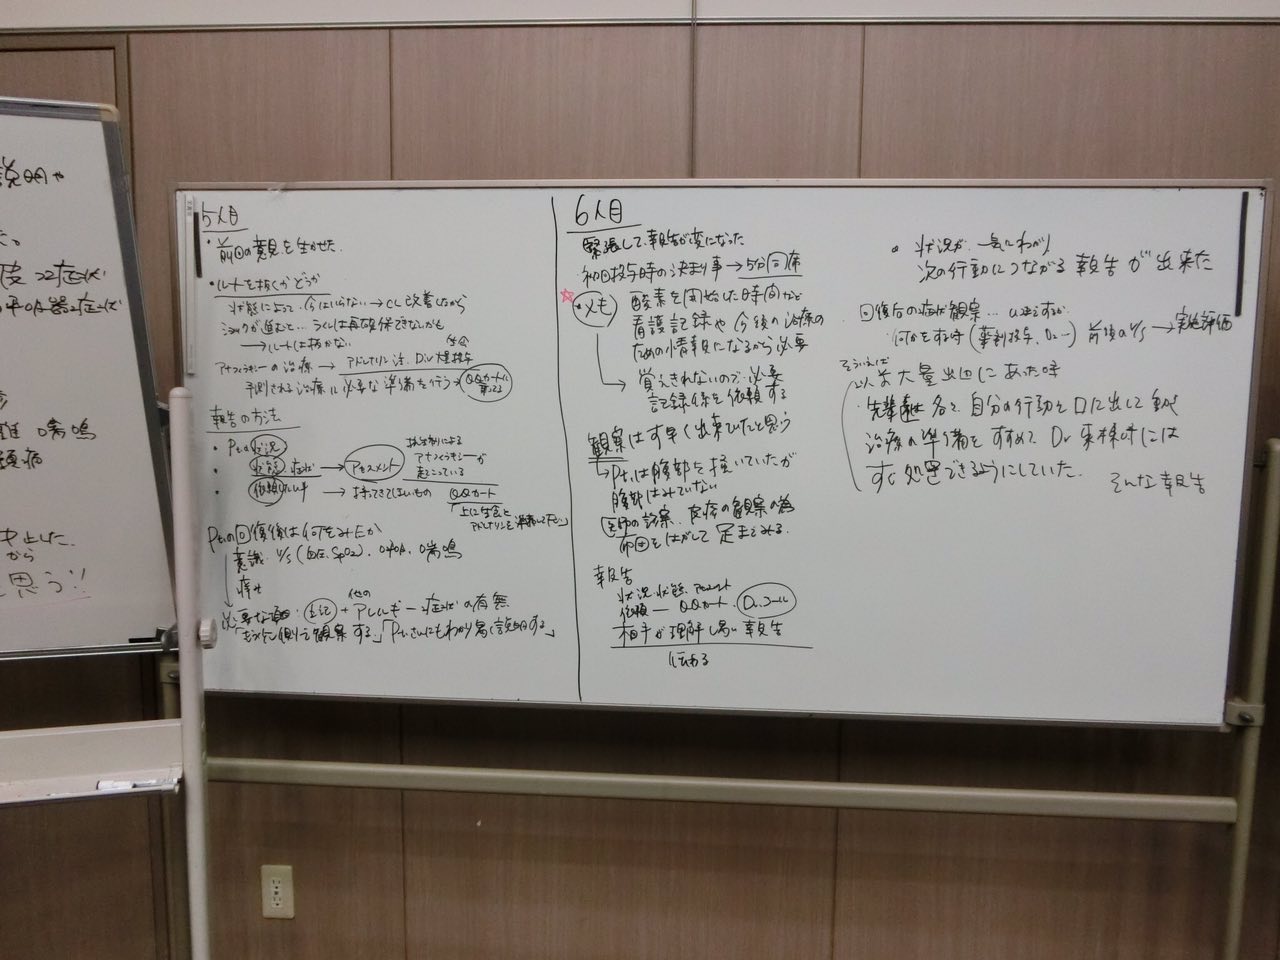 説明や
た。
皮フ症状
呼吸器症状
喘鳴
中止した
から
と思う!!
5人目
・前回の意見を生かせた。
・ルートを抜くかどうか
状態によって、今はいらない→
ショックが進むと…ラインは再確保できないかも
→ルートは抜かない
生食
アナフィラキシーの治療→アドレナリン注、Div大量投与
予測される治療に必要な準備を行う→QQカートに
報告の方法
・Ptの状況
・状態、症状→アセスメント
抗生剤による
アナフィラキシーが
起こっている
・依頼
→持ってきてほしいもの QQカート
「上に生食と
アドレナリンを準備して下さい」
Ptの回復後は何をみるか
意識、V/S(血圧、SpO2)、呼吸、喘鳴
他の
+アレルギー症状の有無
観察する」「Ptさんにもわかり易く説明する」
6人目
緊張して、報告が変になった
・初回投与時の決まり事→5分同席
☆・メモ 酸素を開始した時間など
看護記録や今後の治療の
ための情報になるから必要
→覚えきれないので必要
記録係を依頼する
観察はす早く出来ていたと思う
→Pt.は腹部を掻いていたが
腹部はみていない
医師の診察、皮疹の観察の為
布団をはがして足までみる。
報告
状況、状態、アセスメント
依頼―QQカート、Dr.コール
相手が理解し易い報告
伝わる
・状況が一気にわかり
次の行動につながる報告が出来た
回復后の症状観察…
何かをする時(薬剤投与、) 前後のV/S→実施評価
そういえば
以前大量出血にあった時
・先輩達は各々、自分の行動を口に出して動き
治療の準備をすすめて Dr来棟時には
すぐ処置できるようにしていた。
そんな報告